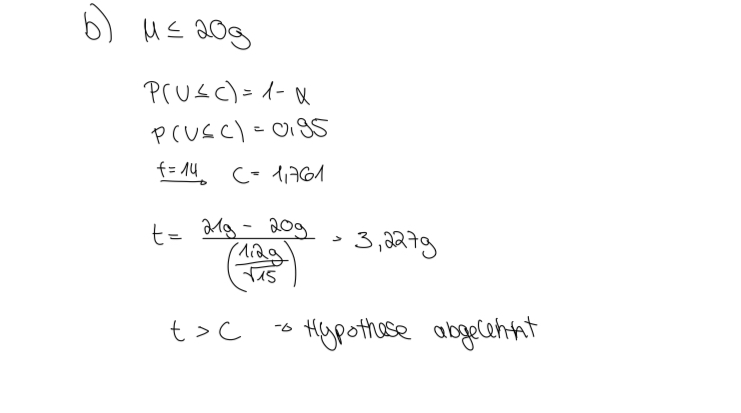 b) µ ≤ 20g
P(U ≤ C) = 1 - α
P(U ≤ C) = 0,95
f = 14 C = 1,761
t = (21g - 20g) / (1,2g / √15) = 3,227g
t > C → Hypothese abgelehnt